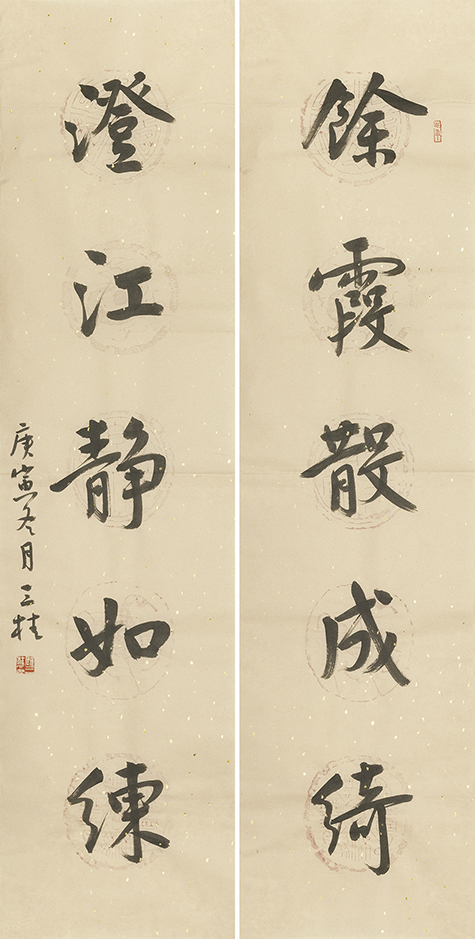 餘霞散成綺
澄江靜如練
庚寅冬月三桂